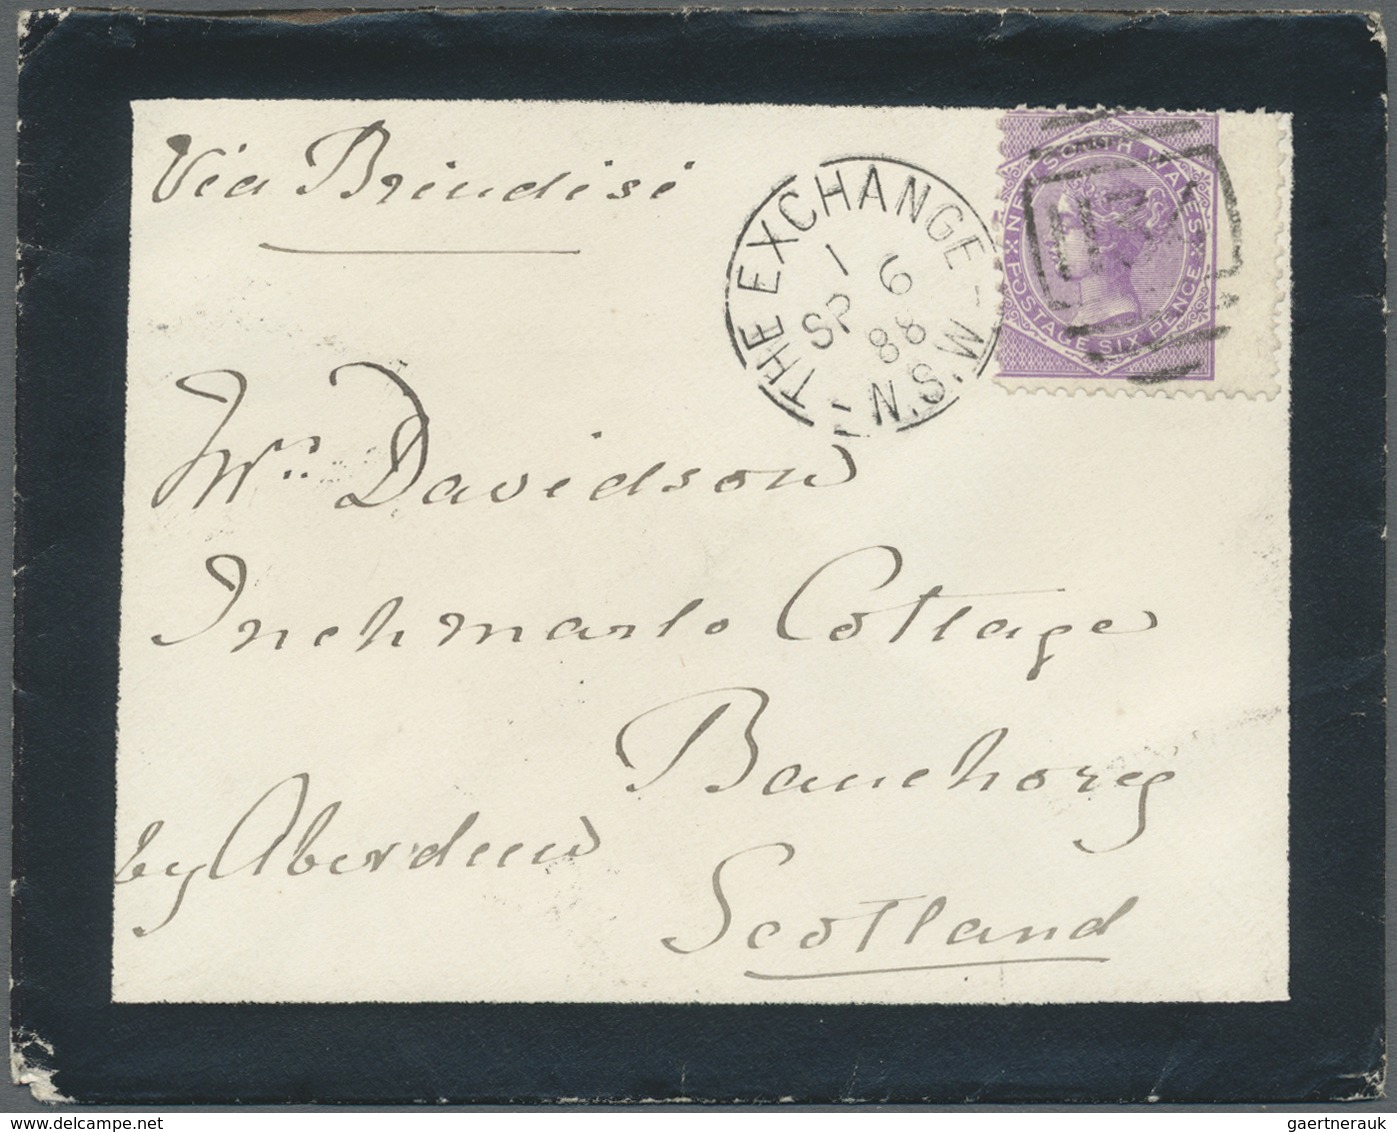 Via Brindisi
THE EXCHANGE
1 6
SP 88
N.S.W.
NEW SOUTH WALES
POSTAGE SIX PENCE
Davidson
Inchmarlo Cottage
Banchory
by Aberdeen
Scotland
gaertnerauk